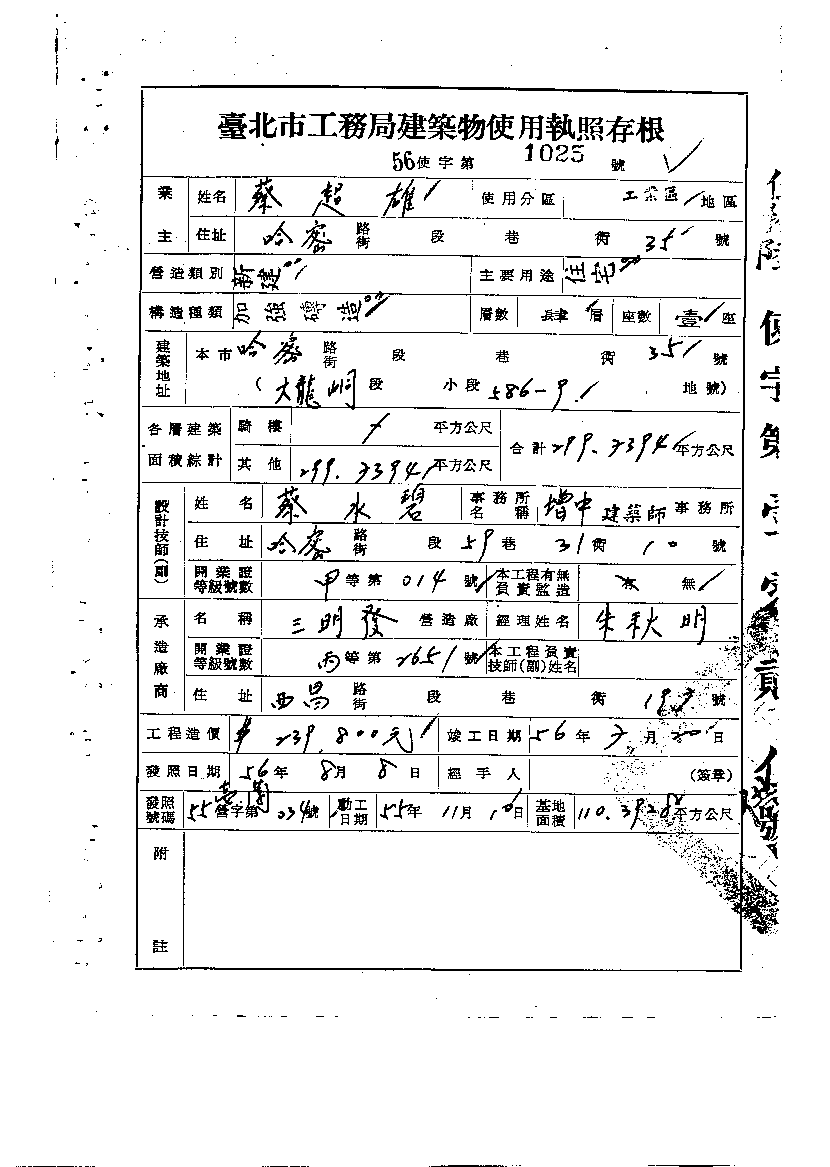 臺北市工務局建築物使用執照存根
56使字第 1025 號
業主 姓名 蔡超雄 使用分區 工業區 地區
住址 哈密 路街 段 巷 街 35 號
營造類別 新建 主要用途 住宅
構造種類 加強磚造 層數 肆層 座數 壹座
建築地址 本市 哈密 路街 段 巷 街 35 號
(大龍峒段 小段 586-9 地號)
各層建築面積綜計 騎樓 平方公尺 合計 299.7394 平方公尺
其他 299.7394 平方公尺
設計技師(副) 姓名 蔡水碧 事務所名稱 增中 建築師 事務所
住址 哈密 路街 段 59 巷 31 街 10 號
開業證等級號數 甲等第 014 號 本工程有無負責監造 有 無
承造廠商 名稱 三明發 營造廠 經理姓名 朱秋明
開業證等級號數 丙等第 2651 號 本工程負責技師(副)姓名
住址 西昌 路街 段 巷 街 號
工程造價 $239,800元 竣工日期 56年 7月 日
發照日期 56年 8月 8日 經手人 (簽章)
發照號碼 55營字第 034號 動工日期 55年 11月 10日 基地面積 110.3928 平方公尺
附註
使字第